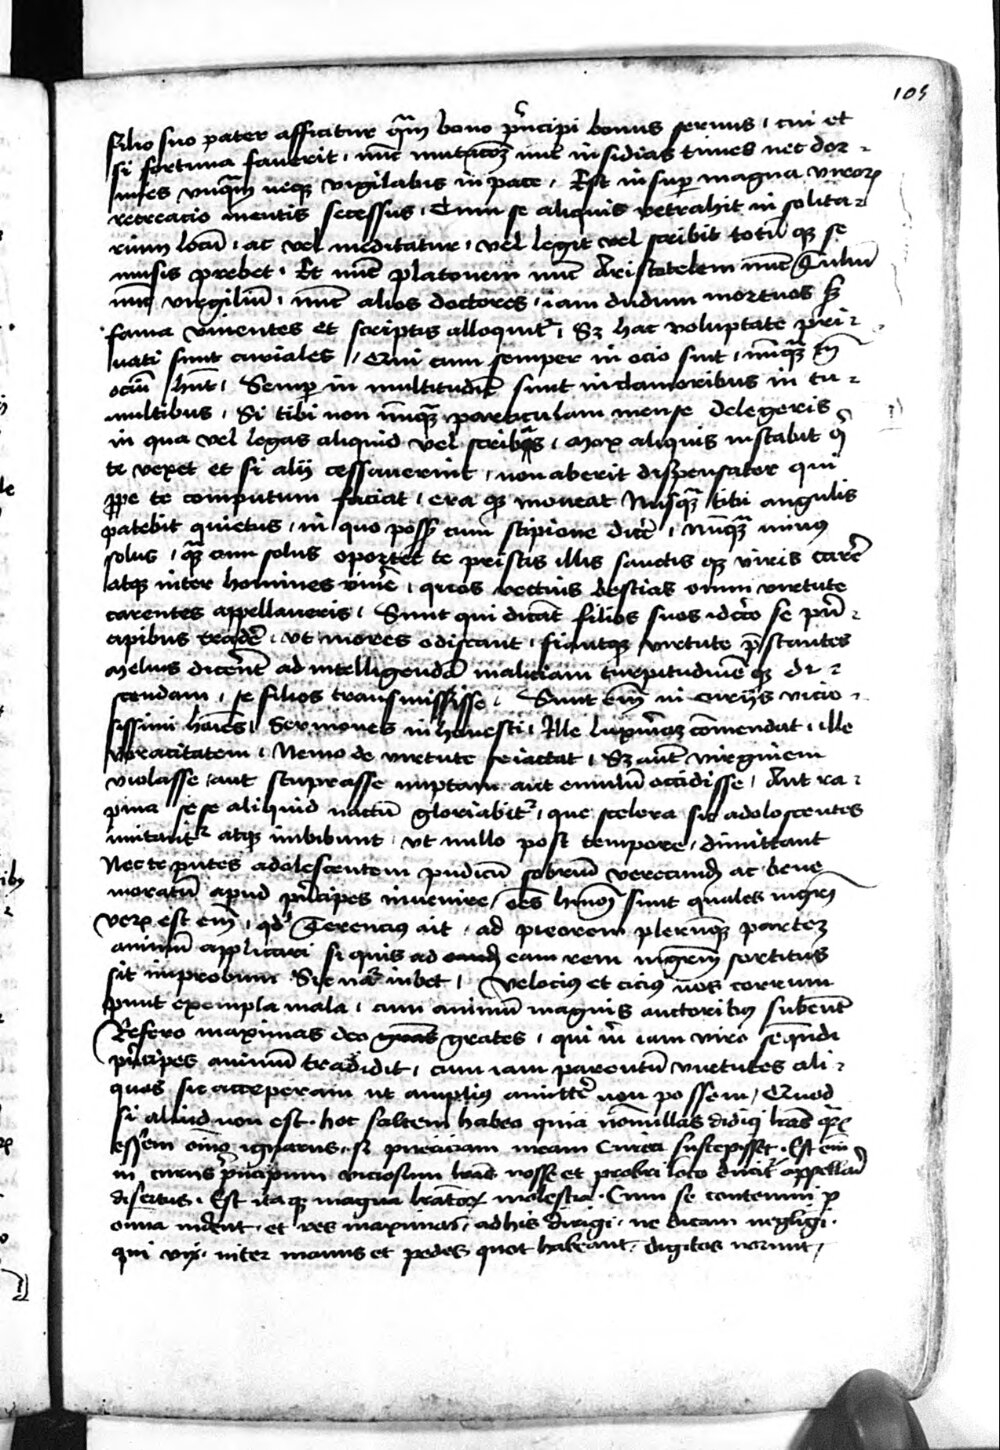 105
filio suo pater afficitur q̄m bono p̄ncipi bonus seruus , cui et
si fortuna fauerit , nūc mutacōꝫ nūc insidias times nec dor-
mies vnq̄m neqꝫ vigilabis in pace , Est insup magna viroꝝ
recreacio mentis secessus , Cum se aliquis retrahit in solita-
rium locū , ac vel meditatur , vel legit vel scribit totū qꝫ se
musis prebet . Et nūc platonem nūc Aristotelem nūc Tuliū
nūc virgiliū , nūc alios doctores , iam dudum mortuos sꝫ
fama viuentes et scriptis alloquitᷣ , Sꝫ hac voluptate pri-
uati sunt curiales , Qui cum semper in ocio sint , nūqꝫ tn̄
ociū hn̄t , Semp in multitudīe sunt in clamoribus in tu-
multibus , Si tibi non nūqꝫ particulam mense delegeris
in qua vel legas aliquid vel scribas , mox aliquis instabit q̄
te vexet et si alij cessauerint , non aberit dispensator qui
ꝓpe te computum faciat , era qꝫ moueat Nusqꝫ tibi angulis
patebit quietus , in quo possꝫ cum scipione dicē , nūqꝫ minus
solus , qꝫ cum solus oportet te priscis illis sanctis qꝫ viris carē
atqꝫ inter homines viuē , quos rectius bestias omni virtute
carentes appellaueris , Sunt qui dicāt filios suos idcīrco se prī-
cipibus tradē , vt mores ediscant , fiantqꝫ virtute p̄stantes
melius dicerēt ad intelligendā maliciam turpitudinē qꝫ di-
scendam , se filios transmississe , Sunt em̄ in curijs vicio-
sissimi hoīes , Sermones inhonesti , Ille luxuriā comendat , ille
voracitatem , Nemo de virtute se iactat , Sꝫ aut virginem
violasse aut stuprasse nuptam aut emulū occidisse , Aut ra-
pina sese aliquid nactū gloriabitᷣ , que scelera sic adoloscentes
imitantᷣ atqꝫ imbibunt , vt nullo post tempore , dimittant
Nec te putes adolescentem pudicū sobriū verecundꝫ ac bene
moratū apud p̄ncipes inuenire , oēs hui9mōi sunt quales nigrī
verꝝ est em̄ , qd Terencius ait , ad pieorem plerūqꝫ partem
animū applicari si quis ad eandꝫ eam rem ingenī sortitus
sit improbum Sic nā iubet , Velocius et cicius nos corrum
punt exempla mala , cum animū magnis auctoribus subeūt
Refero maximas deo grates , qui m̄ iam viro sequēdi
p̄ncipes animū tradidit , cum iam parentū virtutes ali-
quas sic acceperam ut amplius amittē non possem , Quod
si aliud non est . hoc saltem habeo quia nōnullas didici lrās qꝫ
essem oīno ignarus , si puericiam meam Curia suscepisset . Est em̄
in curiis p̄ncipum viciosum lrās nosse et probri loco ducitᷣ appellari
disertus . Est itaqꝫ magna lrātoꝝ molestia . Cum se contemni p
omnia vidēnt , et res maximas , ab his dirigi , ne dicam negligi .
qui vix . inter manus et pedes quot habeant , digitos norunt ,